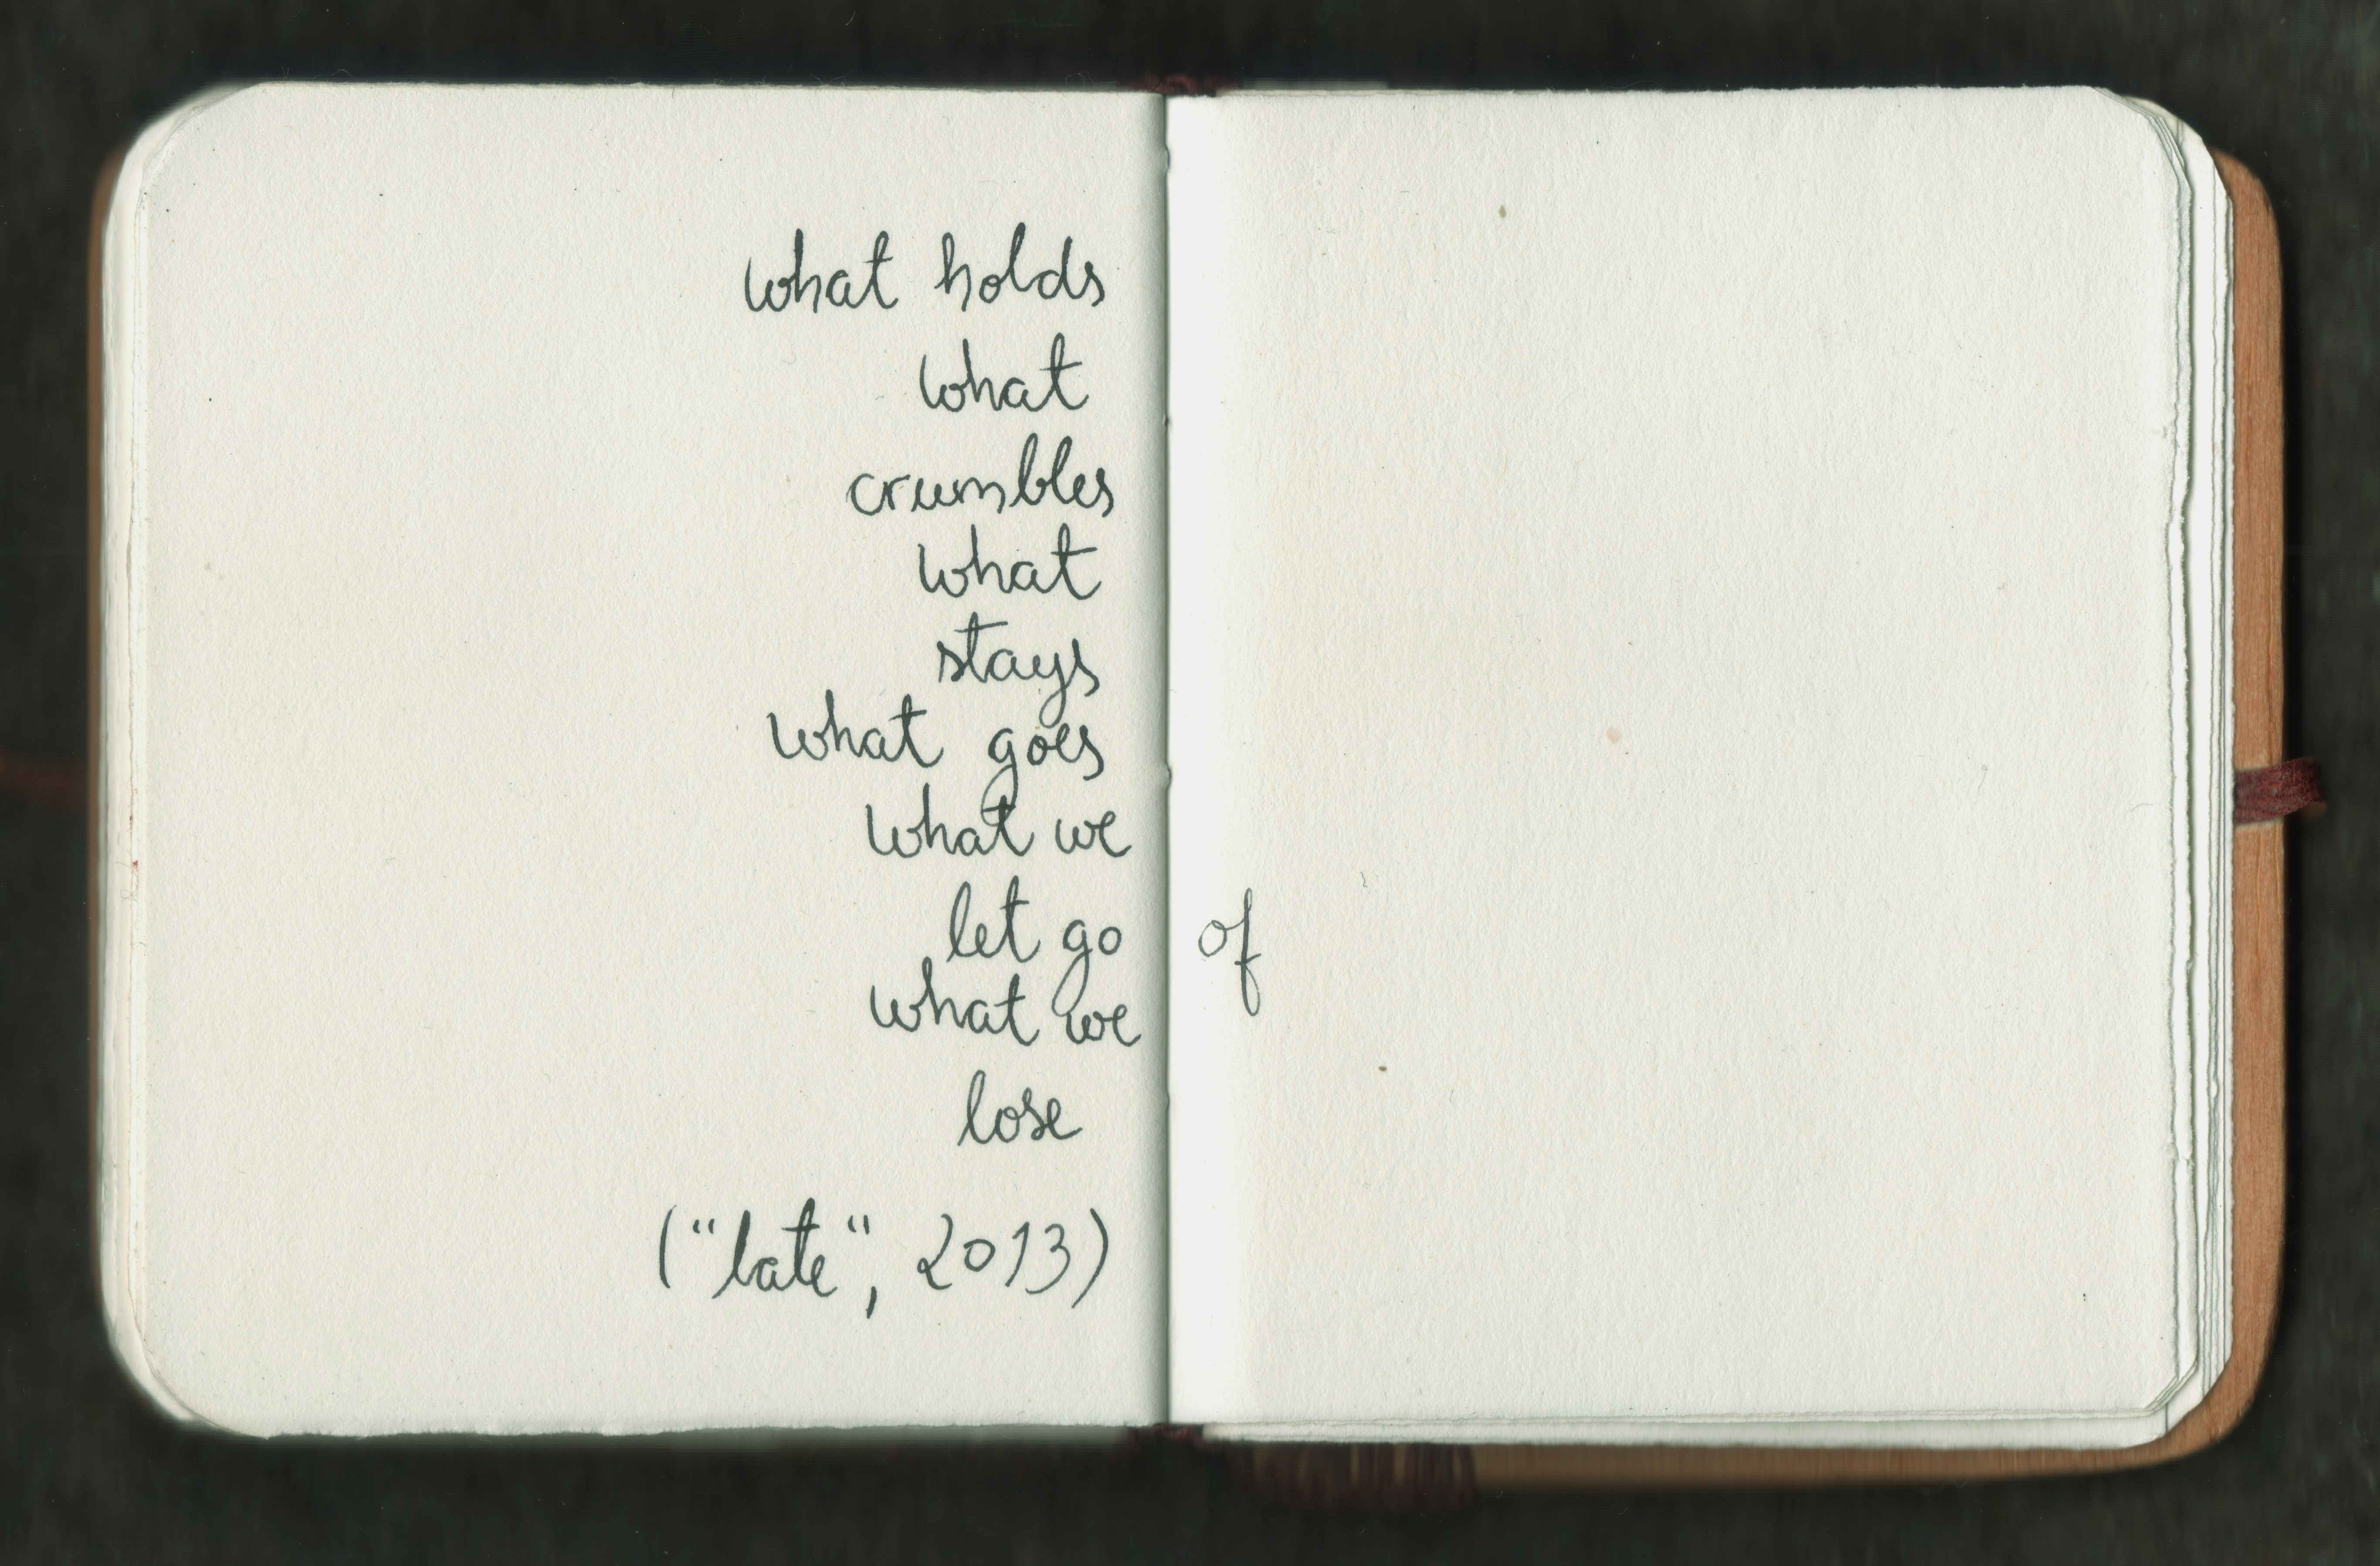 what holds
what
crumbles
what
stays
what goes
what we
let go of
what we
lose
("late", 2013)